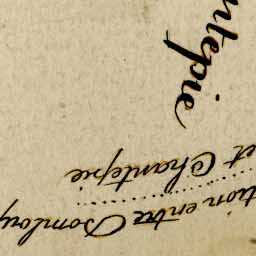 ntepie
tion entre Domlou
et Chantepie